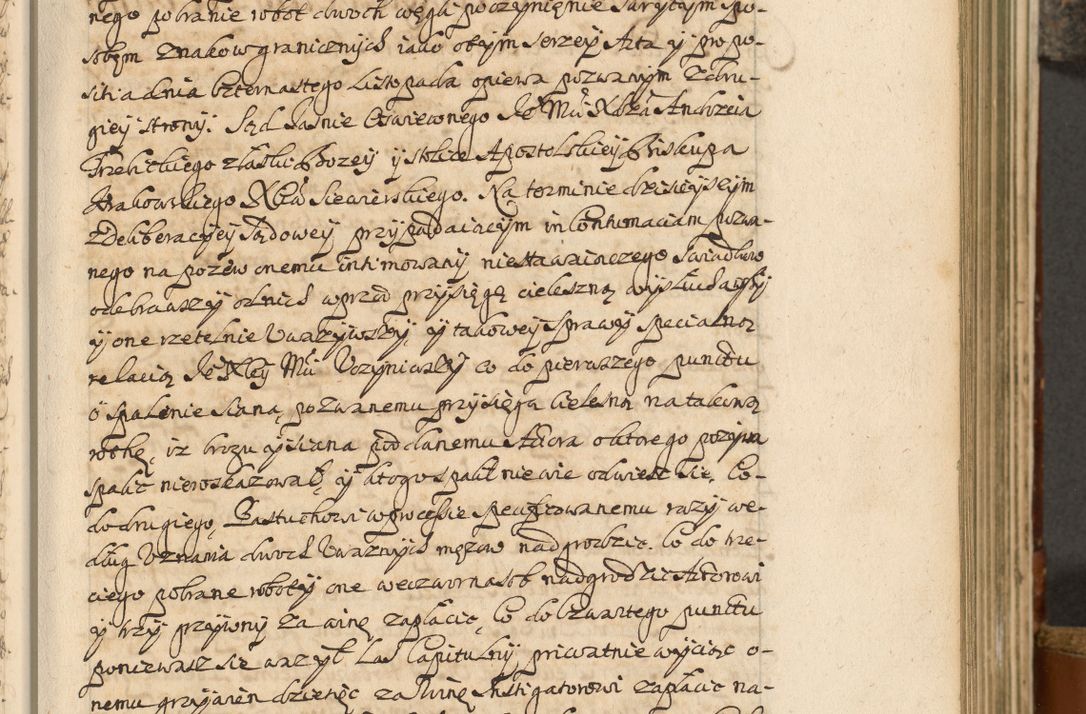 nego pobranie robot dwoch węgla poczynienie starytym spo-
sobem znakow granicznych iako obym serzey Akta y propo-
sitia dnia czternastego Listopada opiewa pozwanym z dru-
giey strony. Sąd Jasnie Oswieconego Je Mći Xdza Andrzeia
Trzebickiego z łaski Bozey y stolice Apostolskiey Biskupa
Krakowskiego Xcia Siewierskiego. Na terminie dzisieyszym
z deliberacyiey Sądowey przypadaiącym in contumaciam pozwa-
nego na pozew onemu intimowany niestawaiączego Swiadkow
odebrawszy od nich wprzod przysięgę cieleszną wysłuchawszy
y one rzetelnie Uwazywszy, y takowey sprawy specialną
relacią Je Xcey Mći Uczyniwszy co do pierwszego punctu
o spalenie siana, pozwanemu przysięga cielesna na takową
rothę, iz brogu y siana poddanemu Aktora o ktorego pozywa
spalic nieroskazował, y ktogo spalił nie wie odwiesc się, Co-
do drugiego, Pastuchowi w processie specifikowanemu razy we-
dług Uznania dwoch Uwaznych męzow nadgrodzic. Co do trze-
ciego pobrane roboty one weczwornasob nadgrodzic Aktorowi
y trzy grzywny za winę zapłacic, Co do Czwartego punctu
poniewasz się wazył Las Capitulny priwatnie wyciąc o-
nemu grzywien dziesięc za Winę Instigatorowi zapłacic na-